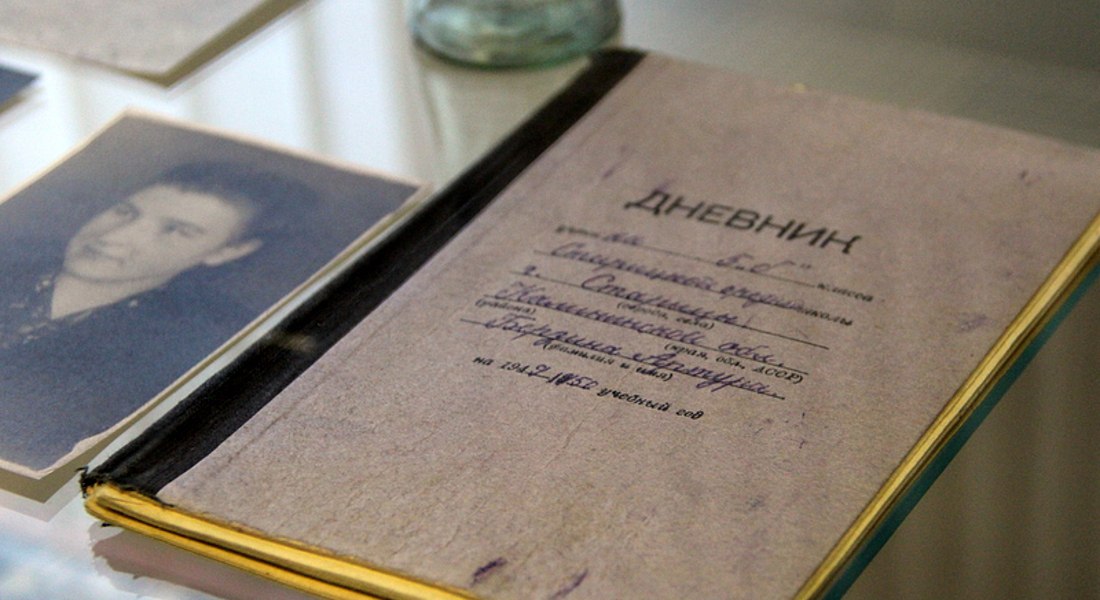 ДНЕВНИК
ка 5 „б" класса
Старицкой средн школы
г. Старицы
(город, село)
Калининской обл.
(района) (края, обл. АССР)
Бердина Артура.
(фамилия и имя)
на 194 1950 учебный год